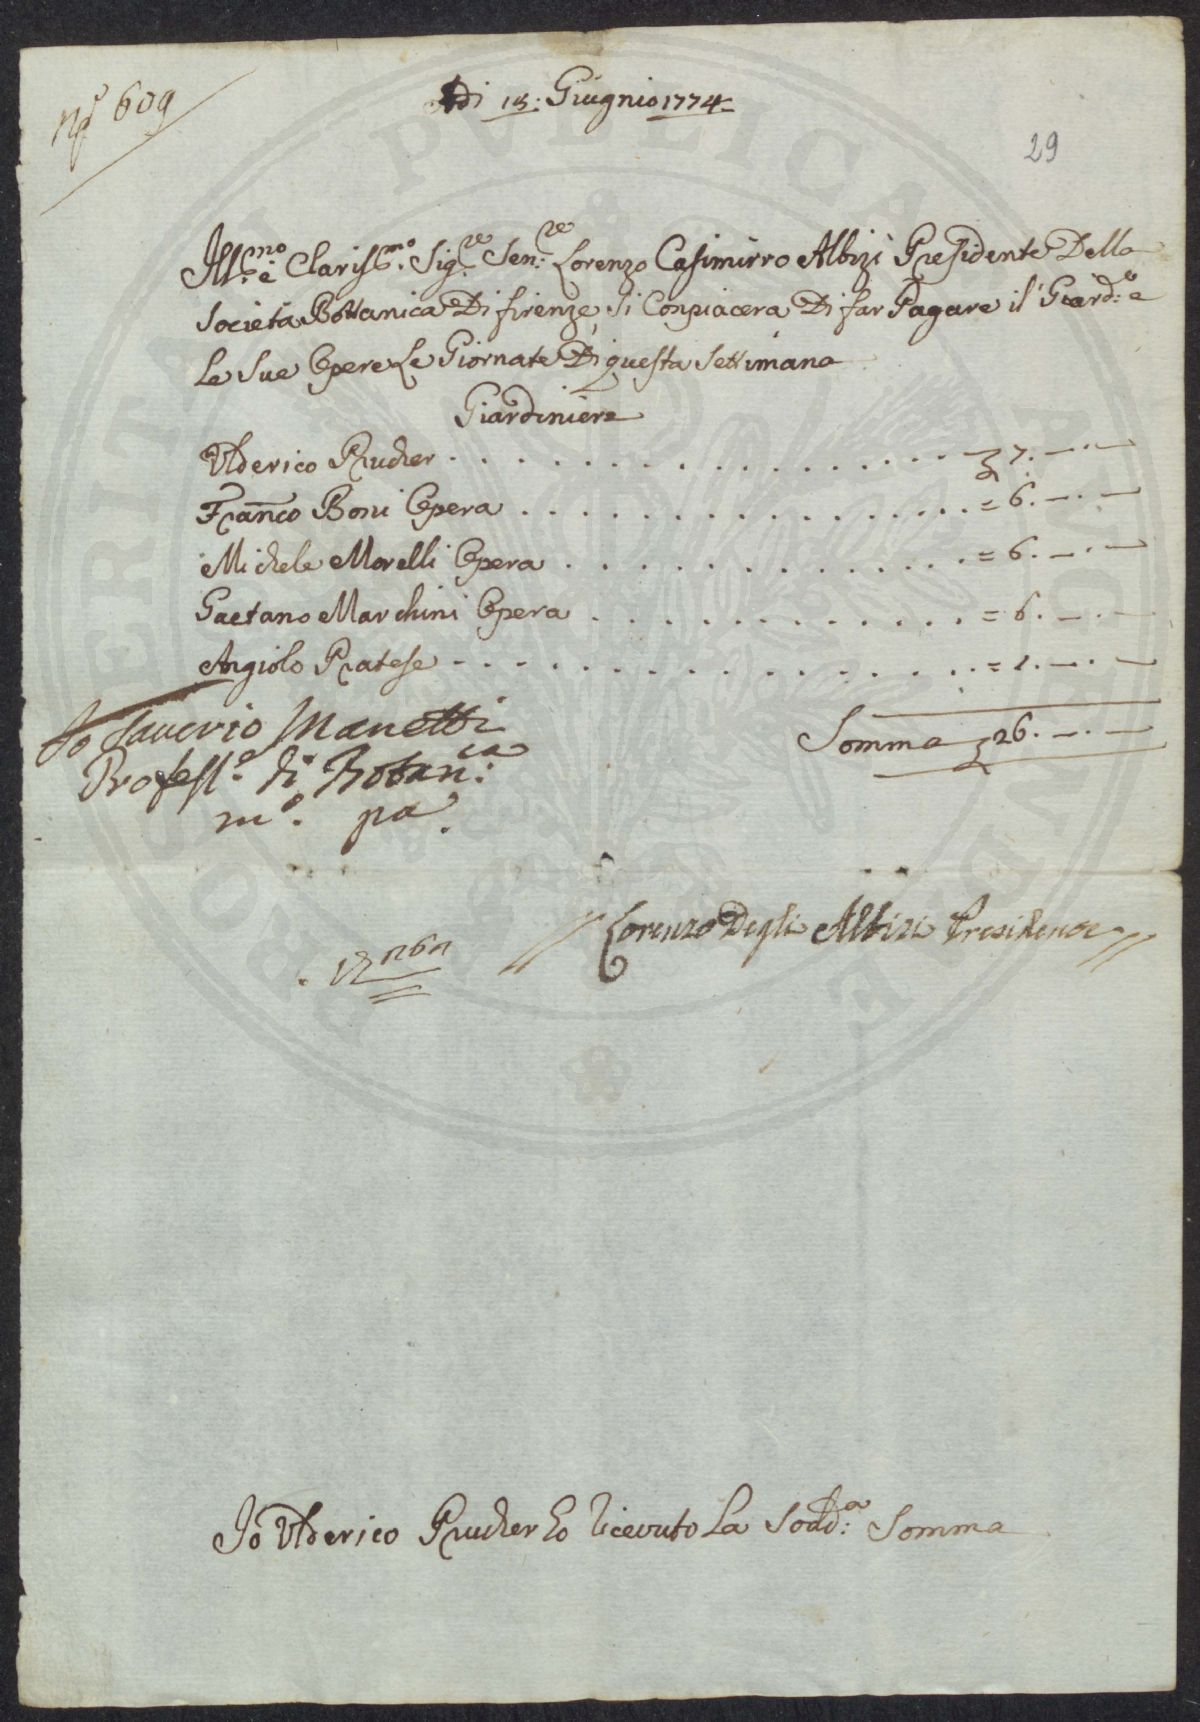 N.º 609
Adi 18: Giugnio 1774
29
Ill:mo e Clariss:mo Sig:re Sen:re Lorenzo Casimirro Albizi Presidente Della
Società Bottanica Di firenze, Si Conpiacera Di far Pagare il Giard:e e
Le Sue Opere Le Giornate Di questa Settimana
Giardiniere
Vlderico Prucher . . . . . . . . . . . . . . . . . . 7. — . —
Franco Boni Opera . . . . . . . . . . . . . . . . . = 6. — . —
Michele Morelli Opera . . . . . . . . . . . . . . . = 6. — . —
Gaetano Marchini Opera . . . . . . . . . . . . . . = 6. — . —
Angiolo Pratese . . . . . . . . . . . . . . . . . . = 1. — . —
Somma 26. — . —
Io Saverio Manetti
Profess.e di Botan:ca
m.o pa.
Lorenzo Degli Albizi Presidente
Io Vlderico Prucher ho ricevuto La Sodd:a Somma
PROSPERITATI PUBLICAE AUGENDAE